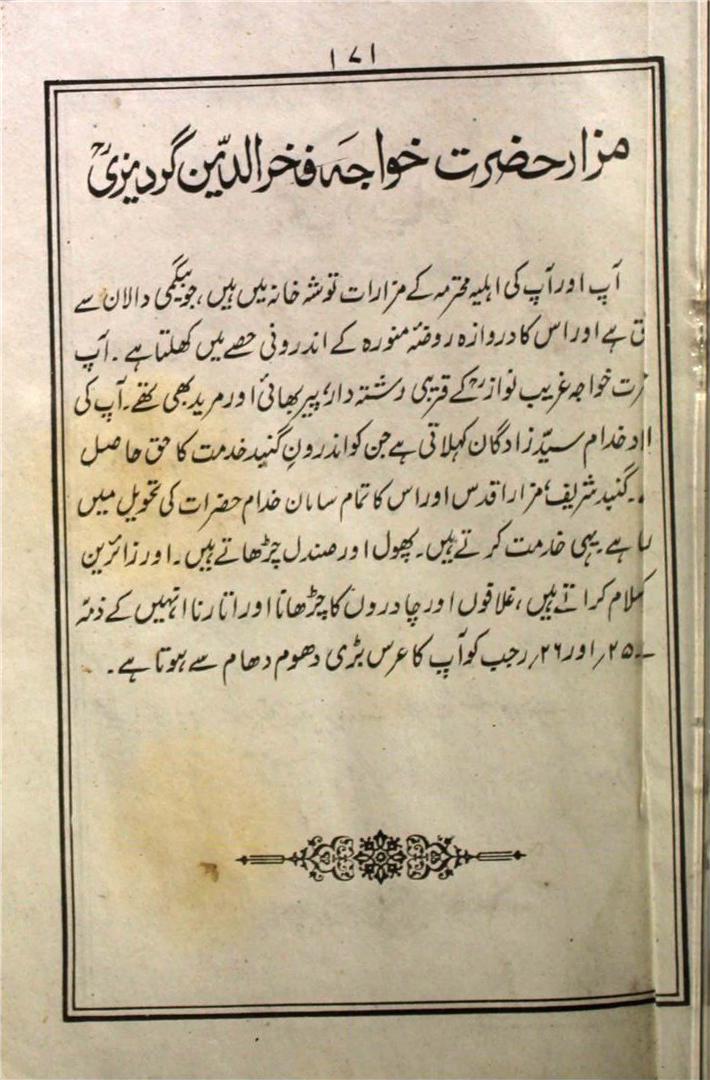 ۱۷۱
مزار حضرت خواجہ فخر الدین گردیزیؒ
آپ اور آپ کی اہلیہ محترمہ کے مزارات توشہ خانہ میں ہیں، جو بیگمی دالان سے
ہے اور اس کا دروازہ روضۂ منورہ کے اندرونی حصے میں کھلتا ہے۔ آپ
خواجہ غریب نوازؒ کے قریبی رشتہ دار، پیر بھائی اور مرید بھی تھے۔ آپ کی
خدام سیّد زادگان کہلاتی ہے جن کو اندرونِ گنبد خدمت کا حق حاصل
۔ گنبد شریف، مزار اقدس اور اس کا تمام سامان خدام حضرات کی تحویل میں
ہے یہی خدمت کرتے ہیں۔ پھول اور صندل چڑھاتے ہیں۔ اور زائرین
کراتے ہیں، غلافوں اور چادروں کا چڑھانا اور اتارنا انہیں کے ذمّہ
۔ ۲۵؍ اور ۲۶؍ رجب کو آپ کا عرس بڑی دھوم دھام سے ہوتا ہے۔